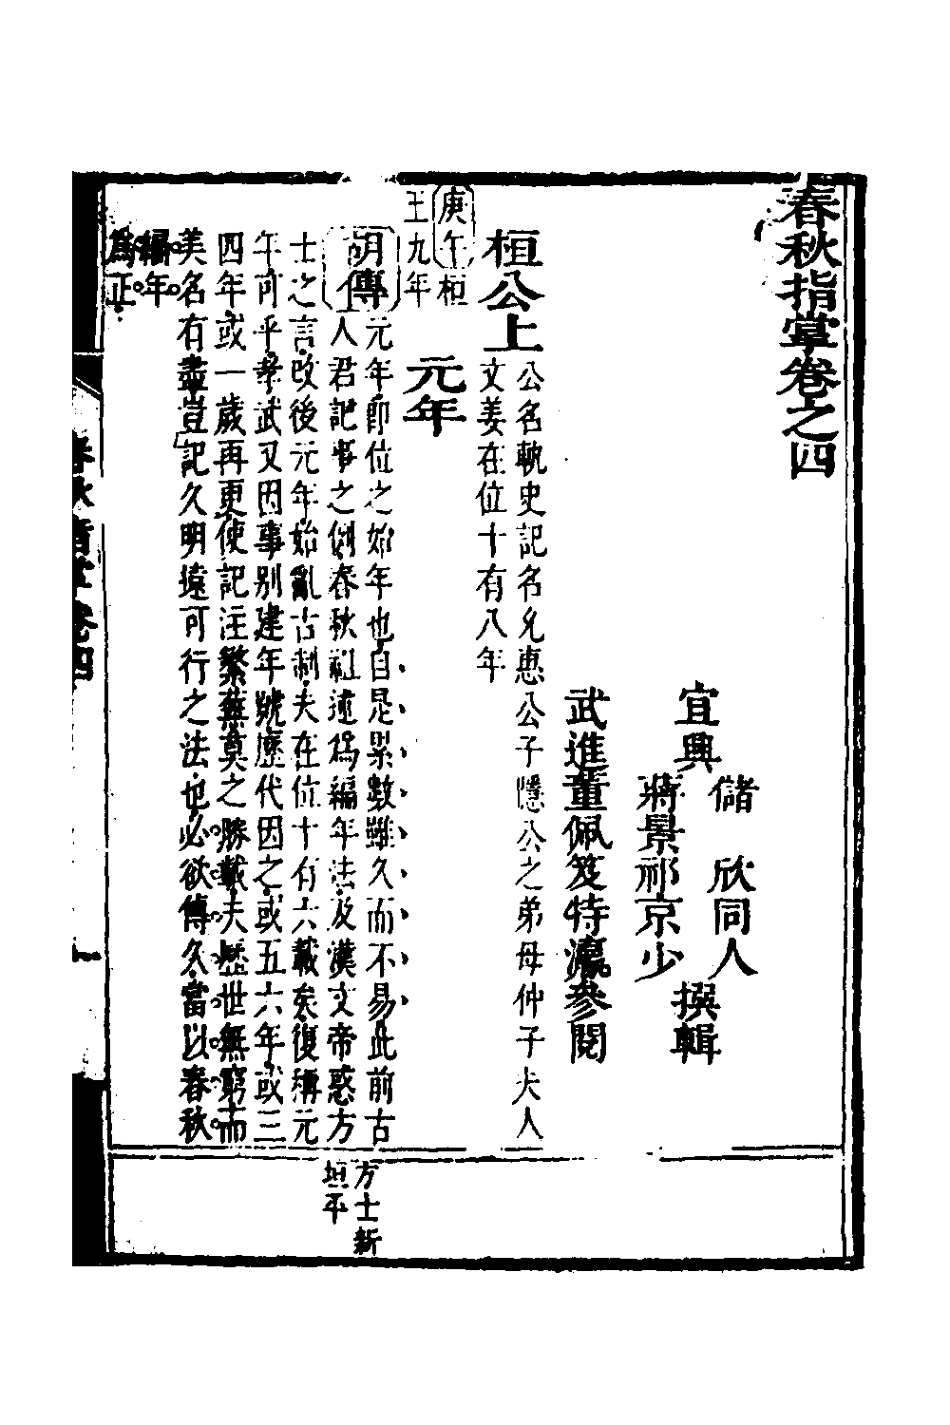 春秋指掌卷之四
儲　欣同人
宜興　撰輯
蔣景祁京少
武進董佩笈特瀛參閱
桓公上
公名軌史記名允惠公子隱公之弟母仲子夫人
文姜在位十有八年
庚午桓
王九年
元年
胡傳
元年即位之始年也自是累數雖久而不易此前古
人君記事之例春秋祖述爲編年法及漢文帝惑方
士之言改後元年始亂古制夫在位十有六載矣復稱元
年可乎孝武又因事别建年號歷代因之或五六年或三
四年或一歲再更使記注繁蕪莫之勝載夫歷世無窮而
美名有盡豈記久明遠可行之法也必欲傳久當以春秋
編年
爲正
方士新
垣平
春秋指掌卷四
一